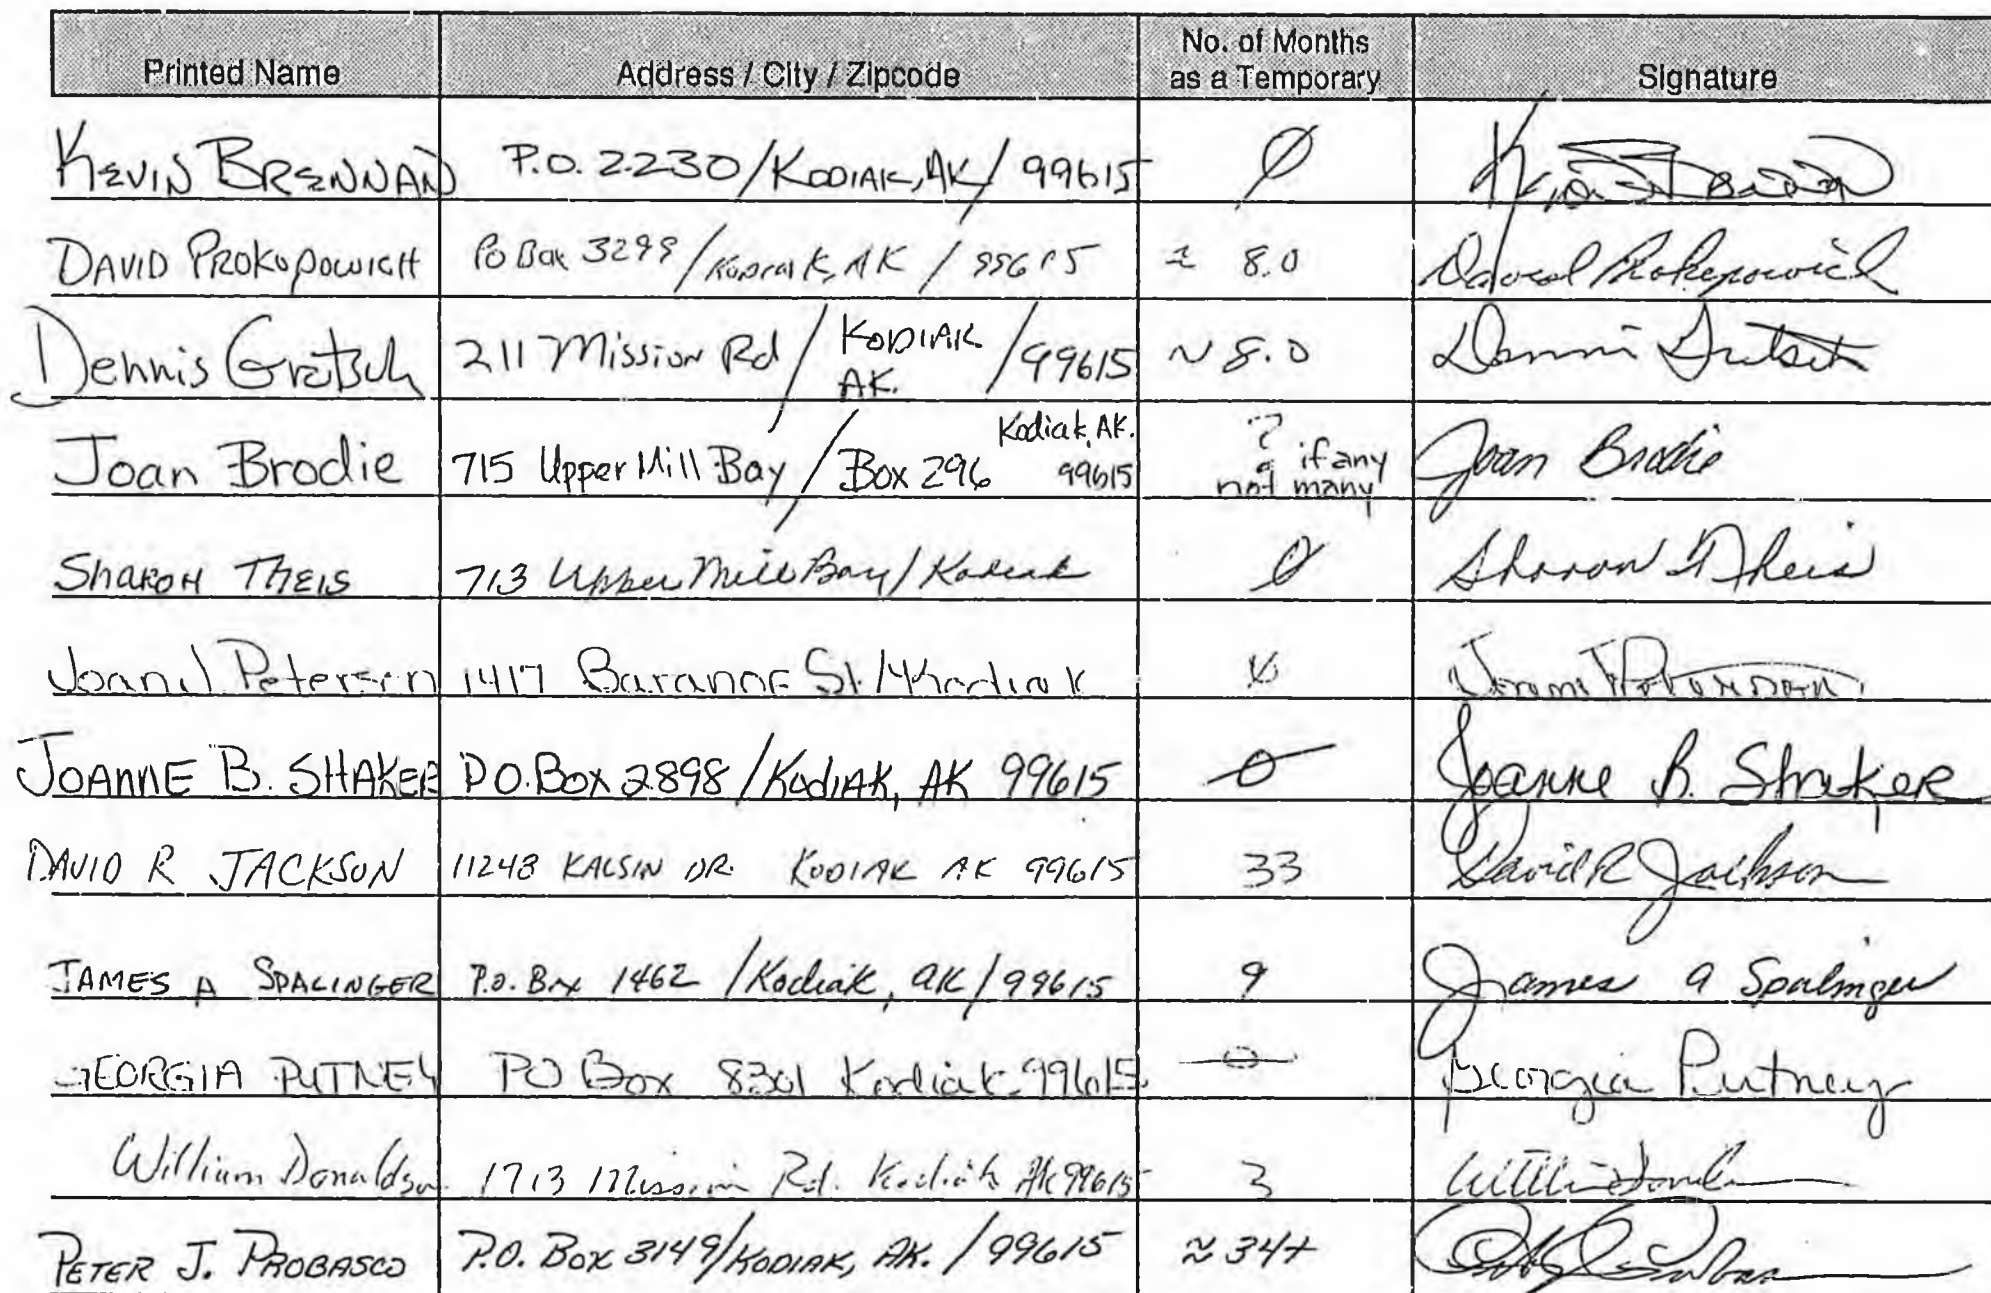 Printed Name Address / City / Zipcode No. of Months as a Temporary Signature
KEVIN BRENNAN P.O. 2230/KODIAK, AK/ 99615 Ø
DAVID PROKOPOWICH PO Box 3299/Kodiak, AK / 99615 ± 8.0 David Prokopowich
Dennis Gretsch 211 Mission Rd / KODIAK AK. / 99615 ~ 8.0 Dennis Gretsch
Joan Brodie 715 Upper Mill Bay / Box 296 Kodiak, AK. 99615 ? if any not many Joan Brodie
SHARON THEIS 713 Upper Mill Bay / Kodiak 0 Sharon Theis
Petersen 1417 Baranof St. / Kodiak
JOANNE B. SHAKER P.O. Box 2898 / Kodiak, AK 99615 0 Joanne B. Shaker
DAVID R JACKSON 11248 KALSIN DR. KODIAK AK 99615 33 David R Jackson
JAMES A SPALINGER P.O. Box 1462 / Kodiak, AK / 99615 9 James A Spalinger
GEORGIA PUTNEY PO Box 8301 Kodiak 99615 0 Georgia Putney
William Donaldson 1713 Mission Rd. Kodiak AK 99615 3
PETER J. PROBASCO P.O. Box 3149/KODIAK, AK. / 99615 ≈ 34+